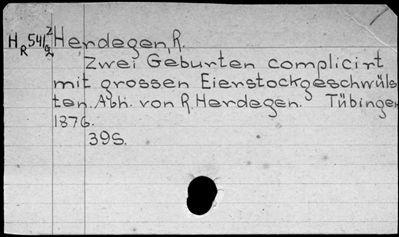 HR 541/2 g Herdegen, R.
Zwei Geburten complicirt
mit grossen Eierstockgeschwüls
ten. Abh. von R. Herdegen. Tübingen
1876.
39S.